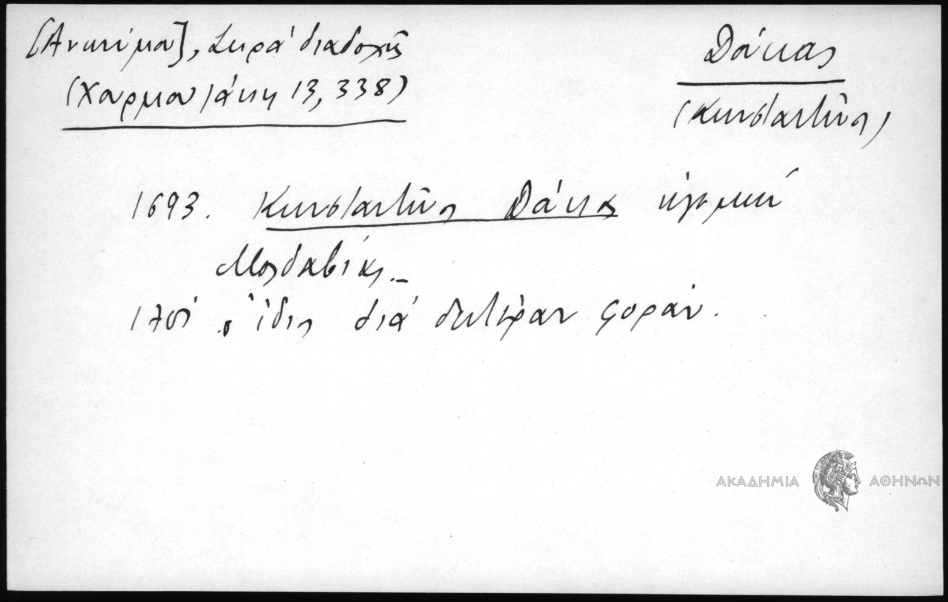 [Ανωνύμου], Σειρά διαδοχής
(Χουρμουζάκη 13, 338)
Δούκας
(Κωνσταντῖνος)
1693. Κωνσταντῖνος Δούκας ἡγεμών
Μολδαβίας.
ὁ ἴδιος διά δευτέραν φοράν.
ΑΚΑΔΗΜΙΑ ΑΘΗΝΩΝ